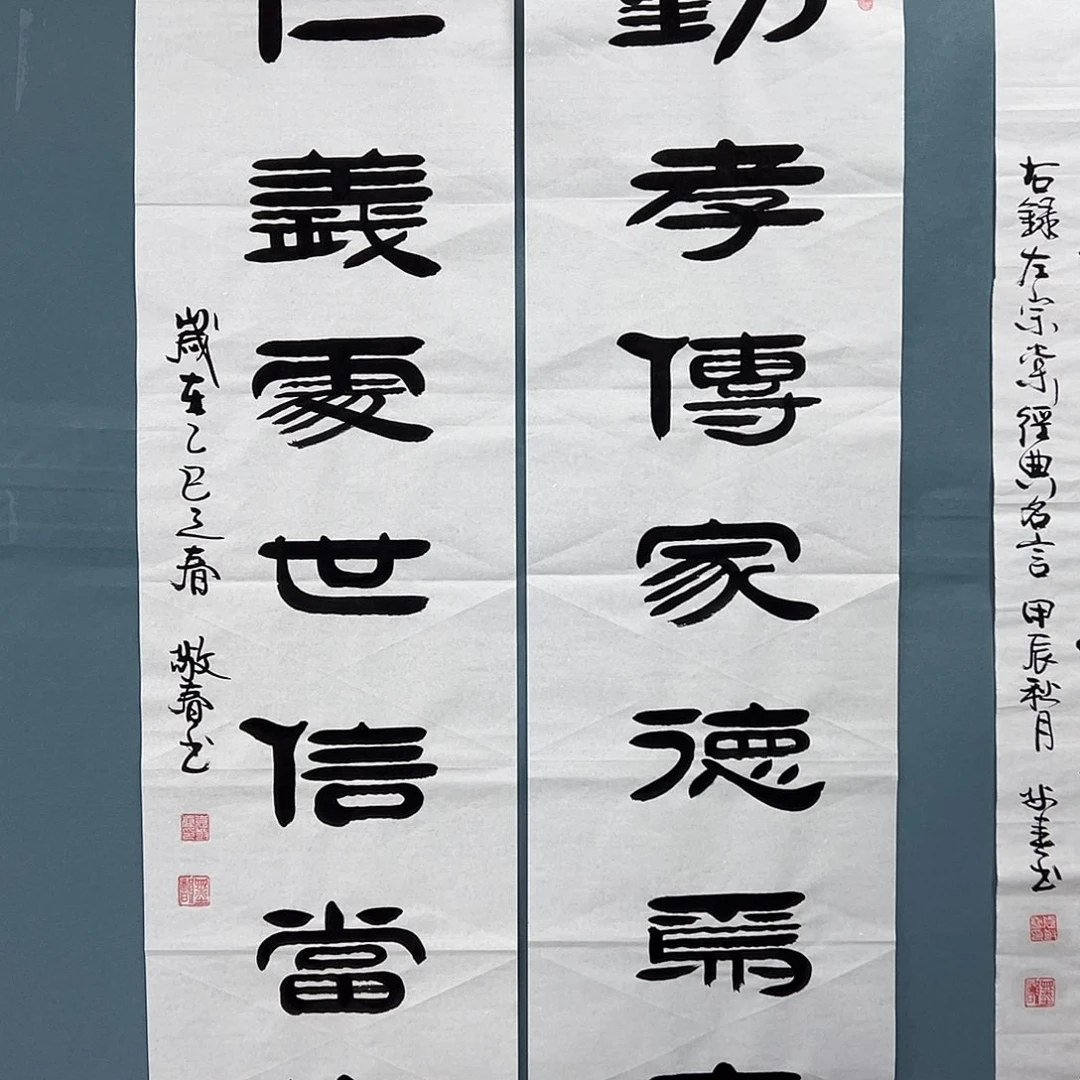 右錄左宗棠經典名言 甲辰秋月 敬春书
勤孝傳家德為
仁義處世信當
歲在乙巳之春 敬春书